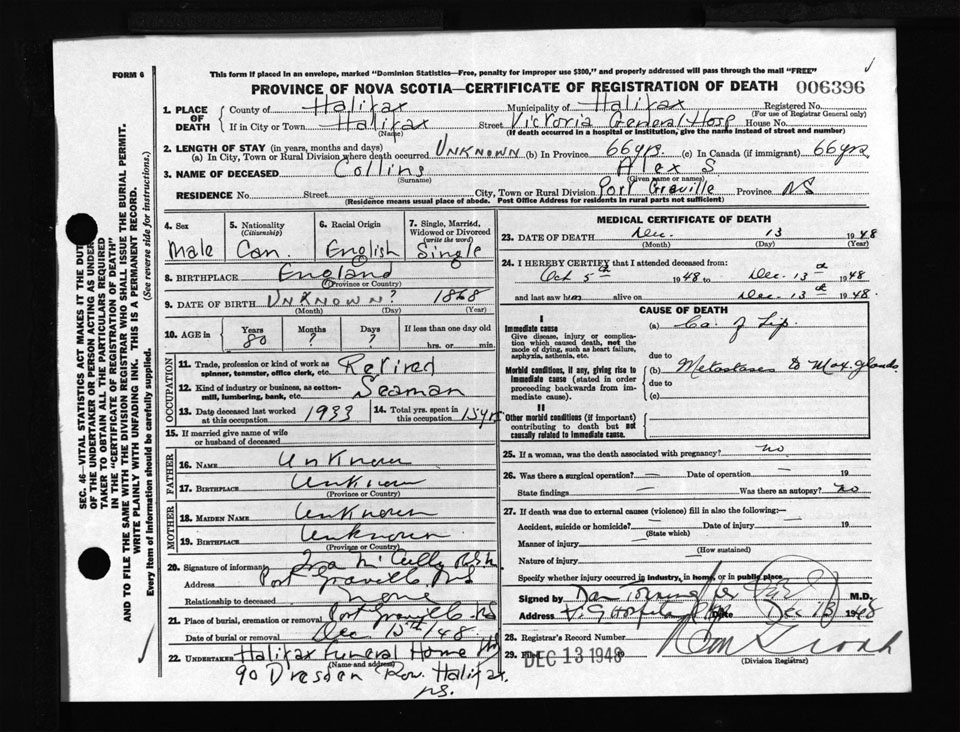 FORM 6
This form if placed in an envelope, marked "Dominion Statistics—Free, penalty for improper use $300," and properly addressed will pass through the mail "FREE"
PROVINCE OF NOVA SCOTIA—CERTIFICATE OF REGISTRATION OF DEATH 006396
1. PLACE OF DEATH County of Halifax Municipality of Halifax Registered No.
(For use of Registrar General only)
If in City or Town Halifax Street Victoria General Hosp House No.
(Name) (If death occurred in a hospital or institution, give the name instead of street and number)
2. LENGTH OF STAY (in years, months and days)
(a) In City, Town or Rural Division where death occurred Unknown (b) In Province 66 yrs. (c) In Canada (if immigrant) 66 yrs
3. NAME OF DECEASED Collins Alex S
(Surname) (Given name or names)
RESIDENCE No. Street City, Town or Rural Division Port Greville Province NS
(Residence means usual place of abode. Post Office Address for residents in rural parts not sufficient)
4. Sex Male
5. Nationality (Citizenship) Can.
6. Racial Origin English
7. Single, Married, Widowed or Divorced (write the word) Single
8. BIRTHPLACE England
(Province or Country)
9. DATE OF BIRTH Unknown ? 1868
(Month) (Day) (Year)
10. AGE in Years 80 Months ? Days ? If less than one day old
hrs. or min.
OCCUPATION
11. Trade, profession or kind of work as spinner, teamster, office clerk, etc. Retired
12. Kind of industry or business, as cotton-mill, lumbering, bank, etc. Seaman
13. Date deceased last worked at this occupation 1933
14. Total yrs. spent in this occupation 15 yrs
15. If married give name of wife or husband of deceased
FATHER
16. NAME Unknown
17. BIRTHPLACE Unknown
(Province or Country)
MOTHER
18. MAIDEN NAME Unknown
19. BIRTHPLACE Unknown
(Province or Country)
20. Signature of informant Ira McCully
Address Port Greville NS
Relationship to deceased None
21. Place of burial, cremation or removal Port Greville NS
Date of burial or removal Dec 15th/48
22. UNDERTAKER Halifax Funeral Home
(Name and address)
90 Dresden Row. Halifax,
NS.
MEDICAL CERTIFICATE OF DEATH
23. DATE OF DEATH Dec. 13 1948
(Month) (Day) (Year)
24. I HEREBY CERTIFY that I attended deceased from:
Oct 5th 1948 to Dec. 13th 1948
and last saw him alive on Dec. 13th 1948.
CAUSE OF DEATH
I
Immediate cause
Give disease, injury or complication which caused death, not the mode of dying, such as heart failure, asphyxia, asthenia, etc.
(a) Ca. of Lip.
due to
Morbid conditions, if any, giving rise to immediate cause (stated in order proceeding backwards from immediate cause).
(b) Metastases to Max. glands
due to
(c)
II
Other morbid conditions (if important) contributing to death but not causally related to immediate cause.
25. If a woman, was the death associated with pregnancy? no
26. Was there a surgical operation? — Date of operation — 19
State findings — Was there an autopsy? no
27. If death was due to external causes (violence) fill in also the following:—
Accident, suicide or homicide? — Date of injury — 19
(State which)
Manner of injury
(How sustained)
Nature of injury
Specify whether injury occurred in industry, in home, or in public place
Signed by M.D.
Address V. G Hospital Date Dec 13 1948
28. Registrar's Record Number
29. Filed DEC 13 1948
(Division Registrar)
SEC. 46—VITAL STATISTICS ACT MAKES IT THE DUTY
OF THE UNDERTAKER OR PERSON ACTING AS UNDER-
TAKER TO OBTAIN ALL THE PARTICULARS REQUIRED
IN THE "CERTIFICATE OF REGISTRATION OF DEATH"
AND TO FILE THE SAME WITH THE DIVISION REGISTRAR WHO SHALL ISSUE THE BURIAL PERMIT.
WRITE PLAINLY WITH UNFADING INK. THIS IS A PERMANENT RECORD.
Every item of information should be carefully supplied. (See reverse side for instructions.)